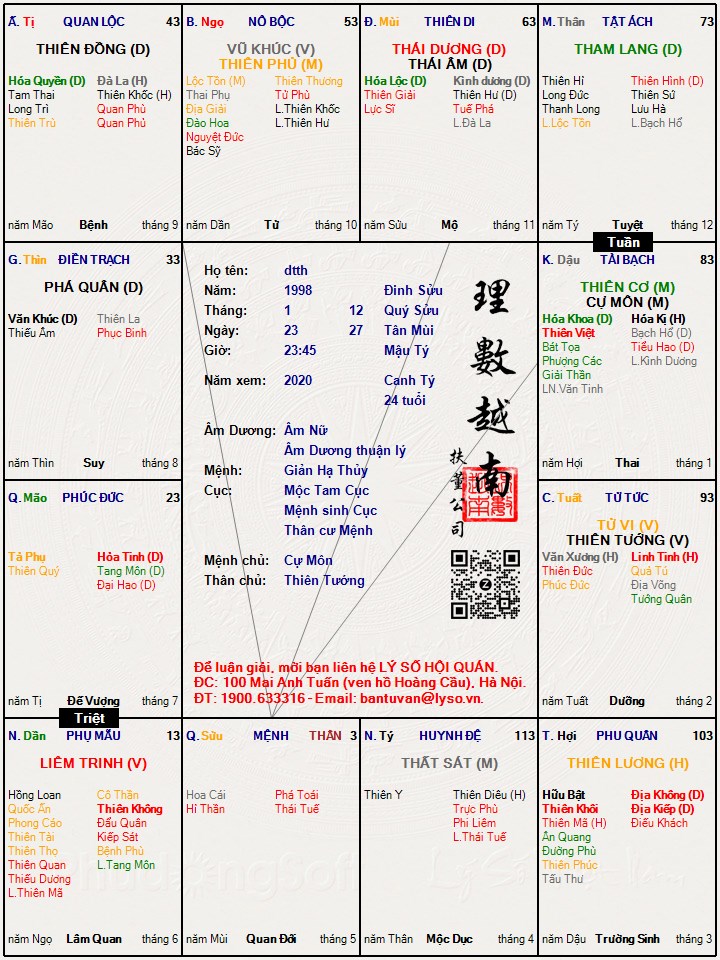 Ấ. Tị QUAN LỘC 43
THIÊN ĐỒNG (D)
Hóa Quyền (D) Đà La (H)
Tam Thai Thiên Khốc (H)
Long Trì Quan Phù
Thiên Trù Quan Phủ
năm Mão Bệnh tháng 9
B. Ngọ NÔ BỘC 53
VŨ KHÚC (V)
THIÊN PHỦ (M)
Lộc Tồn (M) Thiên Thương
Thai Phụ Tử Phù
Địa Giải L.Thiên Khốc
Đào Hoa L.Thiên Hư
Nguyệt Đức
Bác Sỹ
năm Dần Tử tháng 10
Đ. Mùi THIÊN DI 63
THÁI DƯƠNG (D)
THÁI ÂM (D)
Hóa Lộc (D) Kình dương (D)
Thiên Giải Thiên Hư (D)
Lực Sĩ Tuế Phá
L.Đà La
năm Sửu Mộ tháng 11
M. Thân TẬT ÁCH 73
THAM LANG (D)
Thiên Hỉ Thiên Hình (D)
Long Đức Thiên Sứ
Thanh Long Lưu Hà
L.Lộc Tồn L.Bạch Hổ
năm Tý Tuyệt tháng 12
Tuần
G. Thìn ĐIỀN TRẠCH 33
PHÁ QUÂN (D)
Văn Khúc (D) Thiên La
Thiếu Âm Phục Binh
năm Thìn Suy tháng 8
Họ tên: dtth
Năm: 1998 Đinh Sửu
Tháng: 1 12 Quý Sửu
Ngày: 23 27 Tân Mùi
Giờ: 23:45 Mậu Tý
Năm xem: 2020 Canh Tý
24 tuổi
Âm Dương: Âm Nữ
Âm Dương thuận lý
Mệnh: Giản Hạ Thủy
Cục: Mộc Tam Cục
Mệnh sinh Cục
Thân cư Mệnh
Mệnh chủ: Cự Môn
Thân chủ: Thiên Tướng
理數越南
扶董公司
Để luận giải, mời bạn liên hệ LÝ SỐ HỘI QUÁN.
ĐC: 100 Mai Anh Tuấn (ven hồ Hoàng Cầu), Hà Nội.
ĐT: 1900.633316 - Email: bantuvan@lyso.vn.
K. Dậu TÀI BẠCH 83
THIÊN CƠ (M)
CỰ MÔN (M)
Hóa Khoa (D) Hóa Kị (H)
Thiên Việt Bạch Hổ (D)
Bát Tọa Tiểu Hao (D)
Phượng Các L.Kình Dương
Giải Thần
LN.Văn Tinh
năm Hợi Thai tháng 1
Q. Mão PHÚC ĐỨC 23
Tả Phụ Hỏa Tinh (D)
Thiên Quý Tang Môn (D)
Đại Hao (D)
năm Tị Đế Vượng tháng 7
Triệt
C. Tuất TỬ TỨC 93
TỬ VI (V)
THIÊN TƯỚNG (V)
Văn Xương (H) Linh Tinh (H)
Thiên Đức Quả Tú
Phúc Đức Địa Võng
Tướng Quân
năm Tuất Dưỡng tháng 2
N. Dần PHỤ MẪU 13
LIÊM TRINH (V)
Hồng Loan Cô Thần
Quốc Ấn Thiên Không
Phong Cáo Đẩu Quân
Thiên Tài Kiếp Sát
Thiên Thọ Bệnh Phù
Thiên Quan L.Tang Môn
Thiếu Dương
L.Thiên Mã
năm Ngọ Lâm Quan tháng 6
Q. Sửu MỆNH THÂN 3
Hoa Cái Phá Toái
Hỉ Thần Thái Tuế
năm Mùi Quan Đới tháng 5
N. Tý HUYNH ĐỆ 113
THẤT SÁT (M)
Thiên Y Thiên Diêu (H)
Trực Phù
Phi Liêm
L.Thái Tuế
năm Thân Mộc Dục tháng 4
T. Hợi PHU QUÂN 103
THIÊN LƯƠNG (H)
Hữu Bật Địa Không (D)
Thiên Khôi Địa Kiếp (D)
Thiên Mã (H) Điếu Khách
Ân Quang
Đường Phù
Thiên Phúc
Tấu Thư
năm Dậu Trường Sinh tháng 3